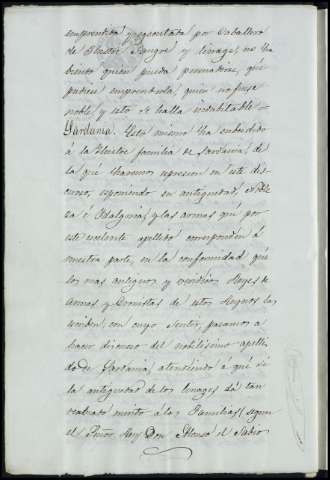 emprendida y egecutada por Caballero
de Ilustre Sangre y linage, no ha
biendo quien pueda persuadirse, qe
pudiese emprenderla, quien no fuese
noble y esto se halla indubitable =
Sardania. Esto mismo ha subcedido
á la Ilustre familia de Sardania, de
la que haremos espresion en este dis-
curso, esponiendo su antiguedad, noble
za é Idalguia, y las armas que por
este escelente apellido corresponden á
nuestra parte, en la conformidad que
los mas antiguos y verídicos Reyes de
Armas y Cronistas de estos Reynos las
escriben, con cuyo sentir, pasamos á
hacer discurso del nobilisimo apelli
do de Sardania, atendiendo á que de
la antiguedad de los linages dá tan
realzado merito á las Familias, segun
el Señor Rey Don Alonso el Sabio